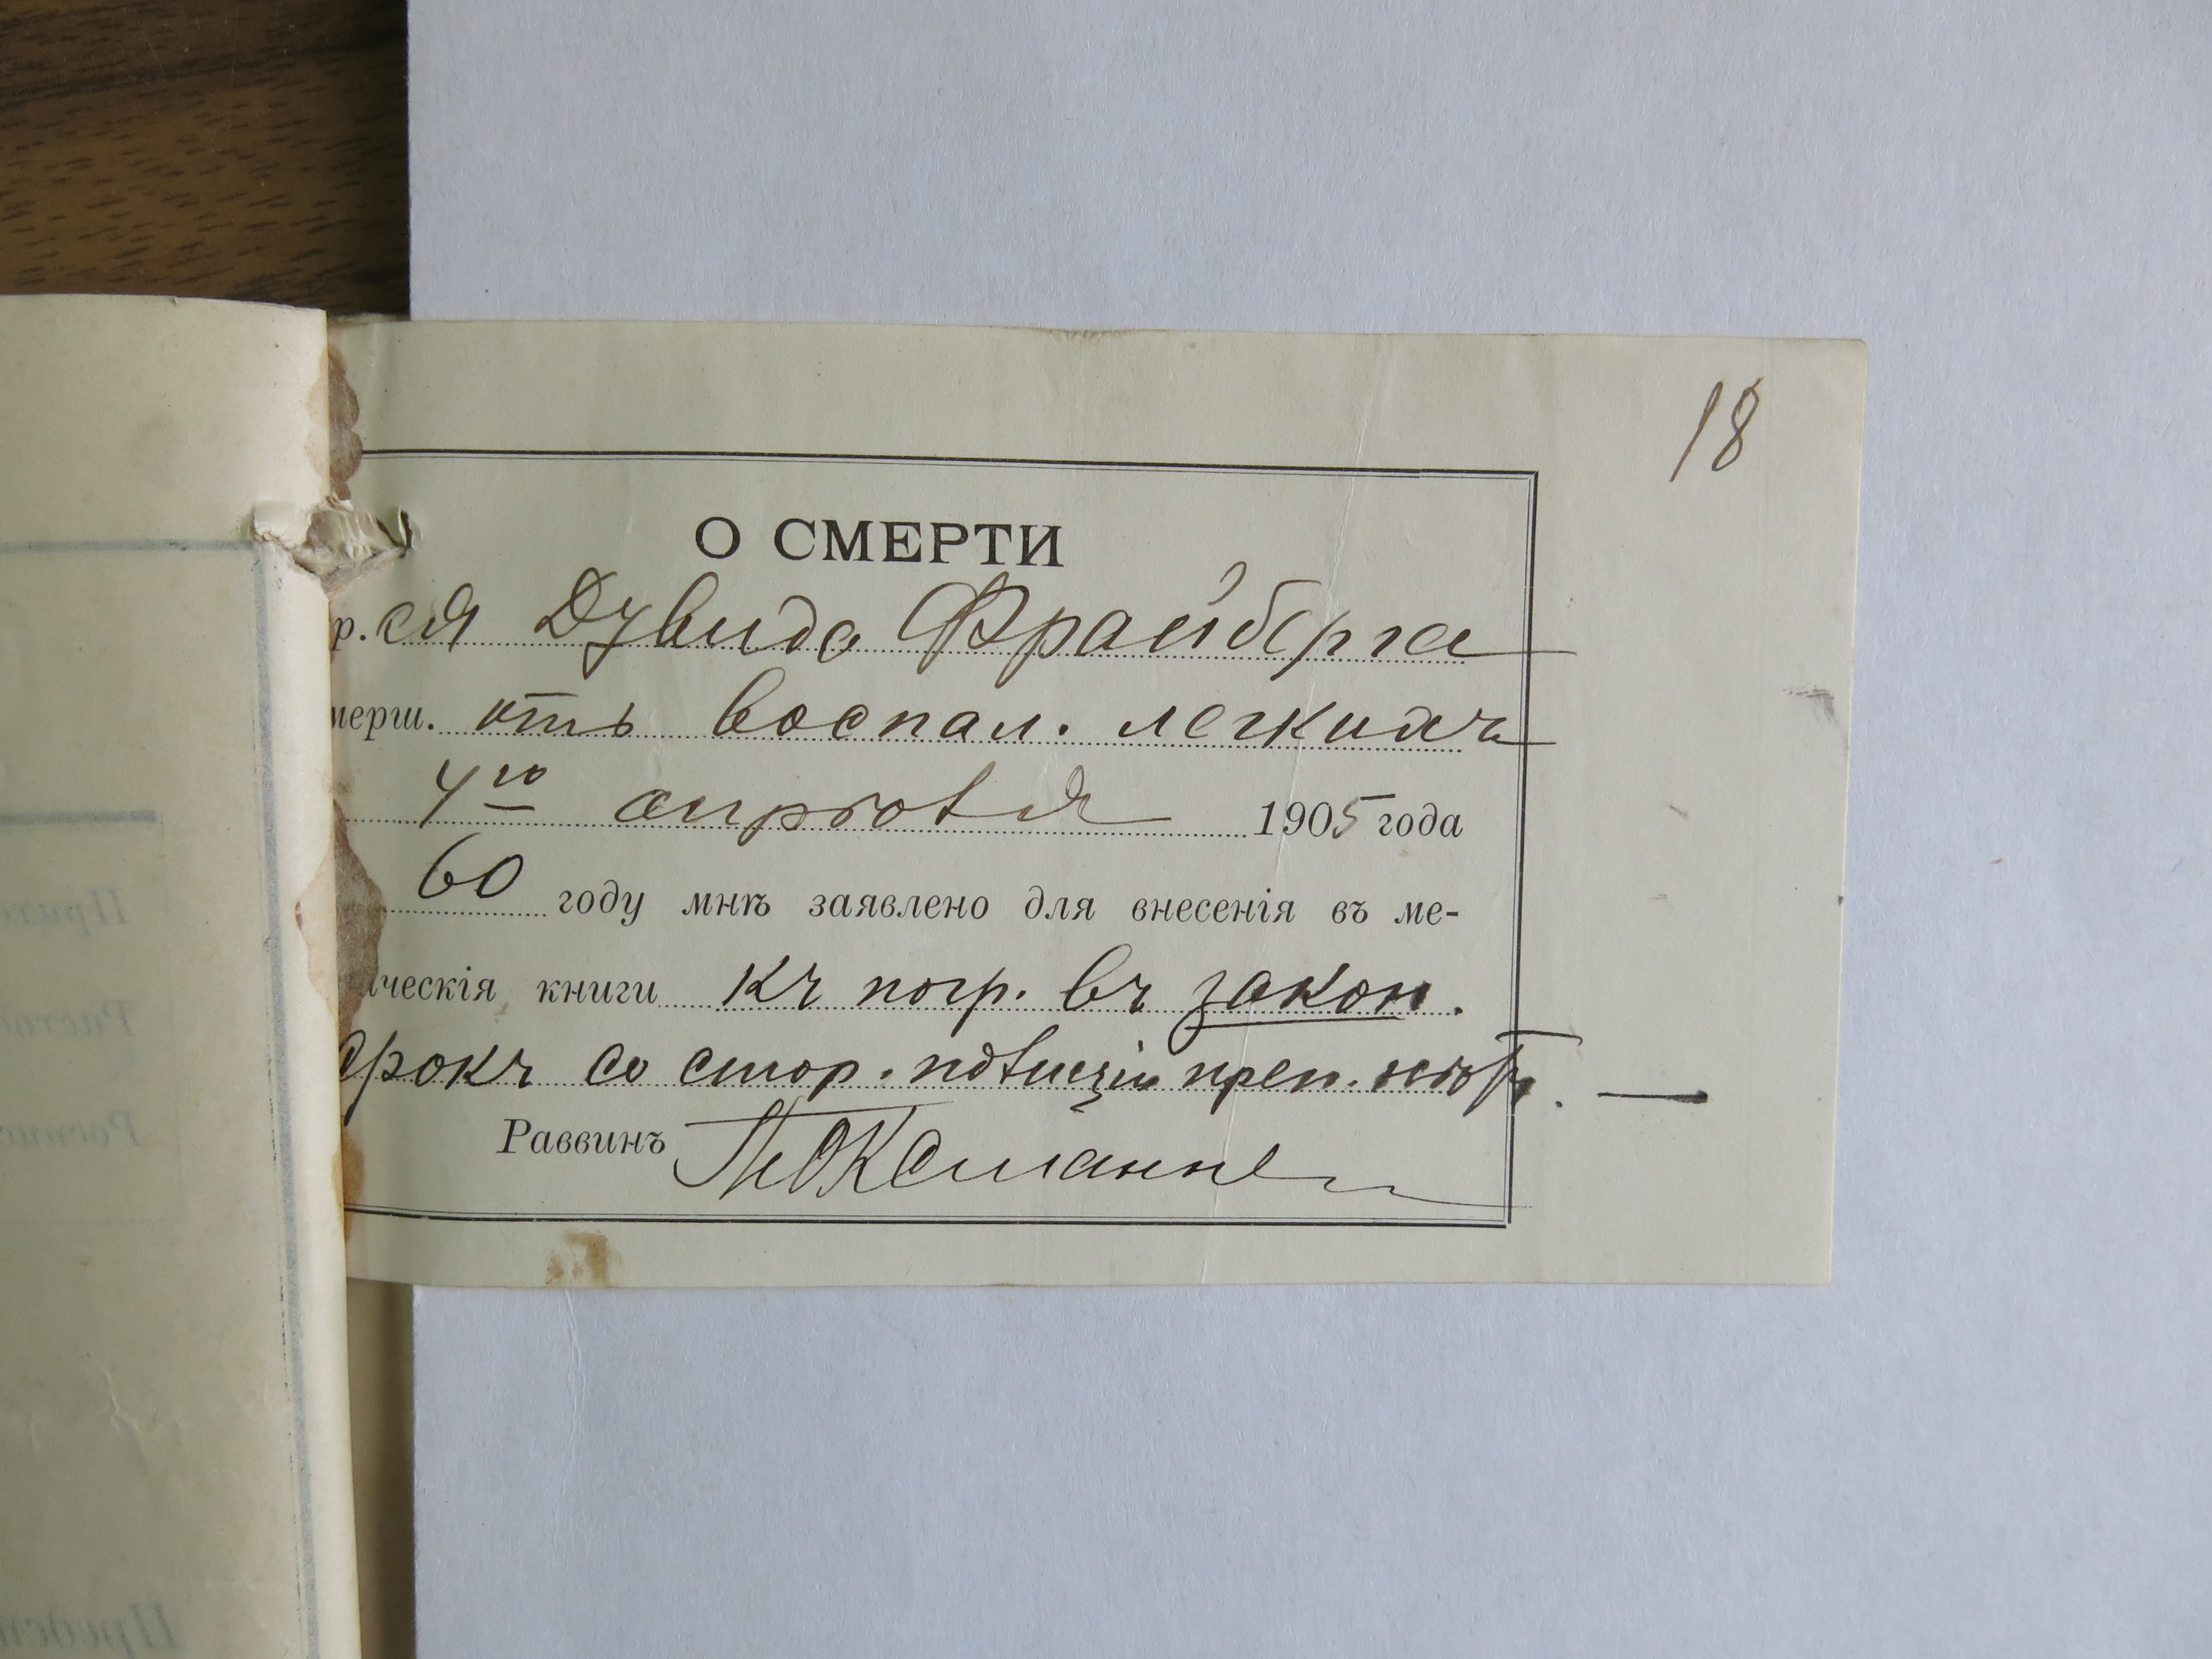 18
О СМЕРТИ
р. ся Дувида Фрайберга
мерш. отъ воспал. легкихъ
4го апрѣля 1905 года
60 году мнѣ заявлено для внесенія въ ме-
ическія книги къ погр. въ закон.
срокъ со стор. полиціи преп. нѣтъ. —
Раввинъ